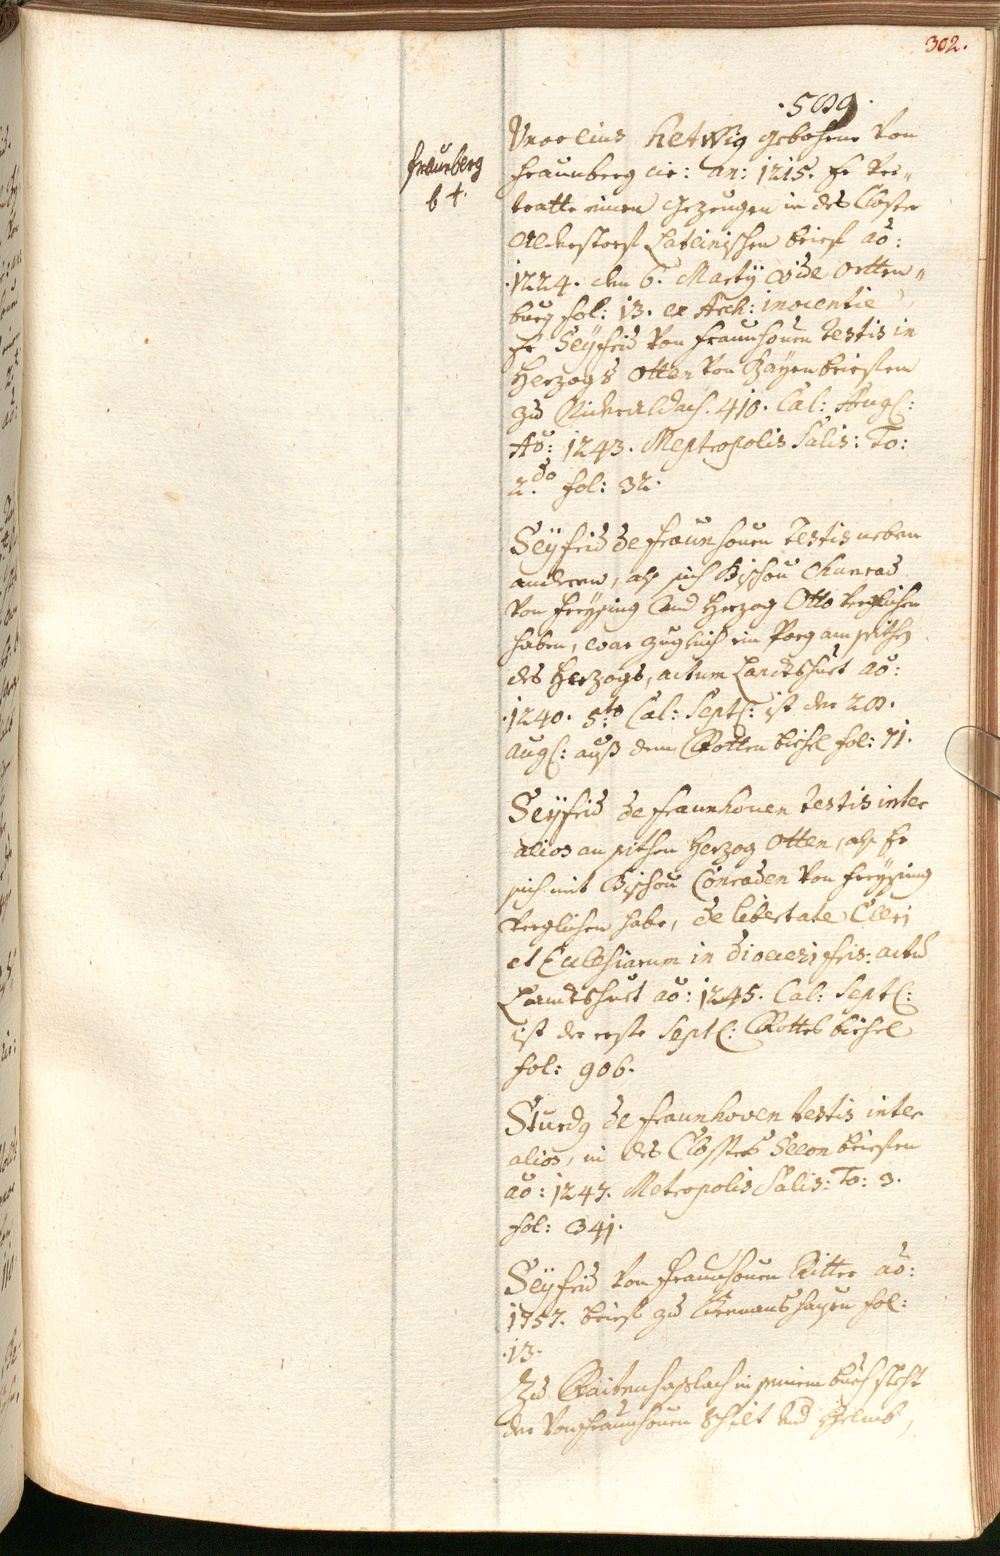 302.
·509·
Uxor eius Hetwig gebohrne von
Fraunberg cir: an: 1215. Er ver„
Fraunberg
f 4.
tratte einen gezeugen in des Closter
Lateinischen brief aō:
·1224. den 6. Martÿ vide Ortten„
burg fol: 13. ex Arch:
Er Seÿfrid von Fraunhouen testis in
Herzogs Otten von Baÿen briefen
zu 410. Cal: Augs:
Aō: 1243. Meptropolis Salis: To:
2.do fol: 32.
Seÿfrid de Fraunhouen testis neben
anderen, alß sich Bischou Chunrad
von Freÿsing und Herzog Otto verglichen
haben, war zugleich ein Porg am seithen
des Herzogs, actum Landtshuet aō:
·1240. 5.to Cal: Septs: ist der 28.
Augs: auß dem Rotten biechel fol: 71.
Seÿfrid de Fraunhouen testis inter
alios an seithen Herzog Otten, alß Er
sich mit Bischou Conraden von Freÿsing
verglichen habe, de libertate Cleri
et Eclesiarum in diocesi fris: actū
Landtshuet aō: 1245. Cal: Septs:
ist der erste Septs: Rottes biechel
fol: 906.
de Fraunhoven testis inter
alios, in des Closters Seeon briefen
aō: 1247. Metropolis Salis: To: 3.
fol: 341.
Seÿfrid von Fraunhouen Ritter aō:
1257. brief zu fol:
·13.
Zu Raitenhaslach in seinem buech steht
der von Fraunhouen Schilt und Helmb,